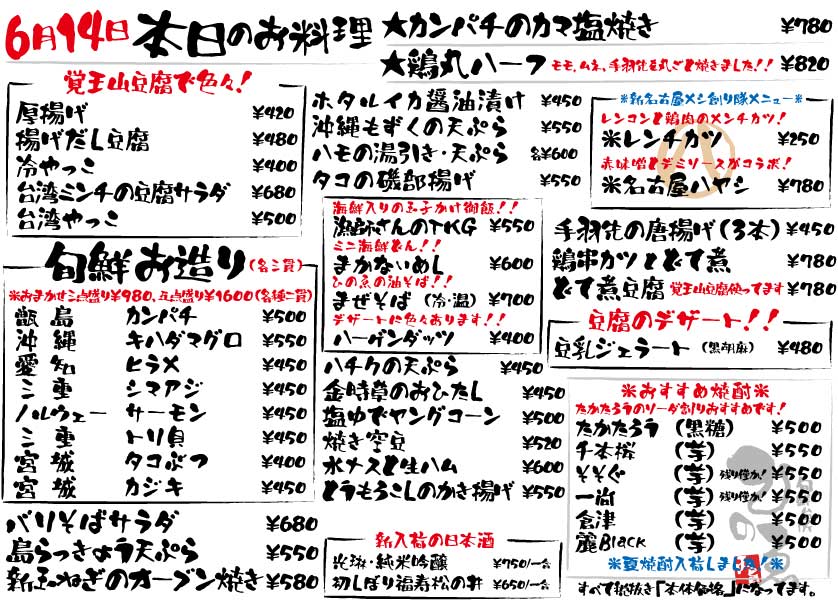 6月14日 本日のお料理
★カンパチのカマ塩焼き ¥780
★鶏丸ハーフ モモ、ムネ、手羽先を丸ごと焼きました!! ¥820
覚王山豆腐で色々!
厚揚げ ¥420
揚げだし豆腐 ¥480
冷やっこ ¥400
台湾ミンチの豆腐サラダ ¥680
台湾やっこ ¥500
旬鮮お造り(各二貫)
※おまかせ三点盛り¥980、五点盛り¥1600(各種二貫)
甑島 カンパチ ¥500
沖縄 キハダマグロ ¥550
愛知 ヒラメ ¥450
三重 シマアジ ¥450
ノルウェー サーモン ¥450
三重 トリ貝 ¥450
宮城 タコぶつ ¥400
宮城 カジキ ¥450
バリそばサラダ ¥680
島らっきょう天ぷら ¥550
新玉ねぎのオーブン焼き ¥580
ホタルイカ醤油漬け ¥450
沖縄もずくの天ぷら ¥550
ハモの湯引き・天ぷら 各¥600
タコの磯部揚げ ¥550
海鮮入りの玉子かけ御飯!!
漁師さんのTKG ¥550
ミニ海鮮どん!!
まかないめし ¥600
ひのゑの油そば!!
まぜそば(冷・温) ¥700
デザートに色々あります!!
ハーゲンダッツ ¥400
ハチクの天ぷら ¥450
金時草のおひたし ¥450
塩ゆでヤングコーン ¥500
焼き空豆 ¥520
水ナスと生ハム ¥600
とうもろこしのかき揚げ ¥550
新入荷の日本酒
光琳・純米吟醸 ¥750/一合
初しぼり福寿松の井 ¥650/一合
※新名古屋メシ創り隊メニュー※
レンコンと鶏肉のメンチカツ!
※レンチカツ ¥250
赤味噌とデミソースがコラボ!
※名古屋ハヤシ ¥780
手羽先の唐揚げ(3本) ¥450
鶏串カツとどて煮 ¥780
どて煮豆腐 覚王山豆腐使ってます ¥780
豆腐のデザート!!
豆乳ジェラート(黒胡麻) ¥480
※おすすめ焼酎※
たかたろうのソーダ割りおすすめです!
たかたろう(黒糖) ¥500
千本桜(芋) ¥500
そそぐ(芋) 残り僅か! ¥500
一尚(芋) 残り僅か! ¥500
倉津(芋) ¥500
麗Black(芋) ¥500
※夏焼酎入荷しました!※
すべて税抜き「本体価格」になってます。